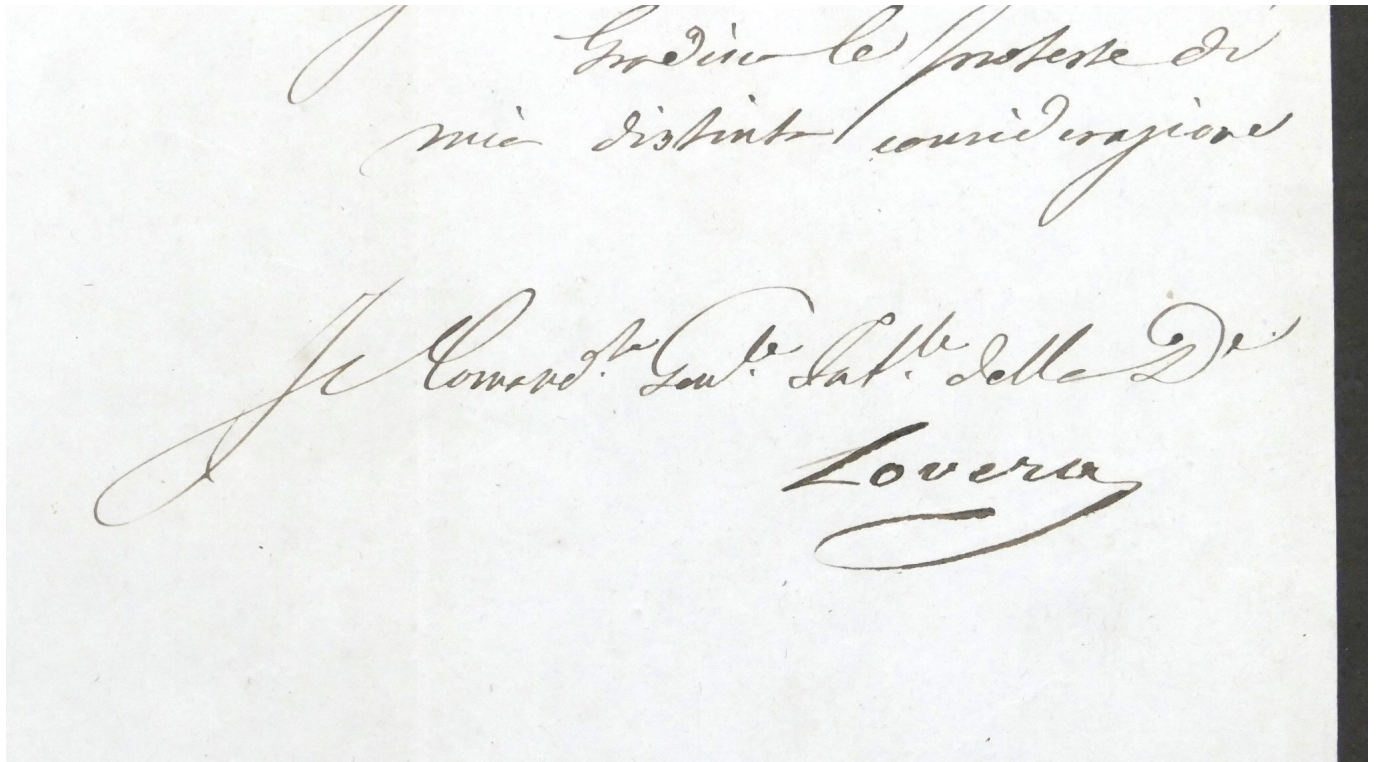 Gradisca le proteste di
mia distinta considerazione
Il Comand.te Gen.le della
Lovera